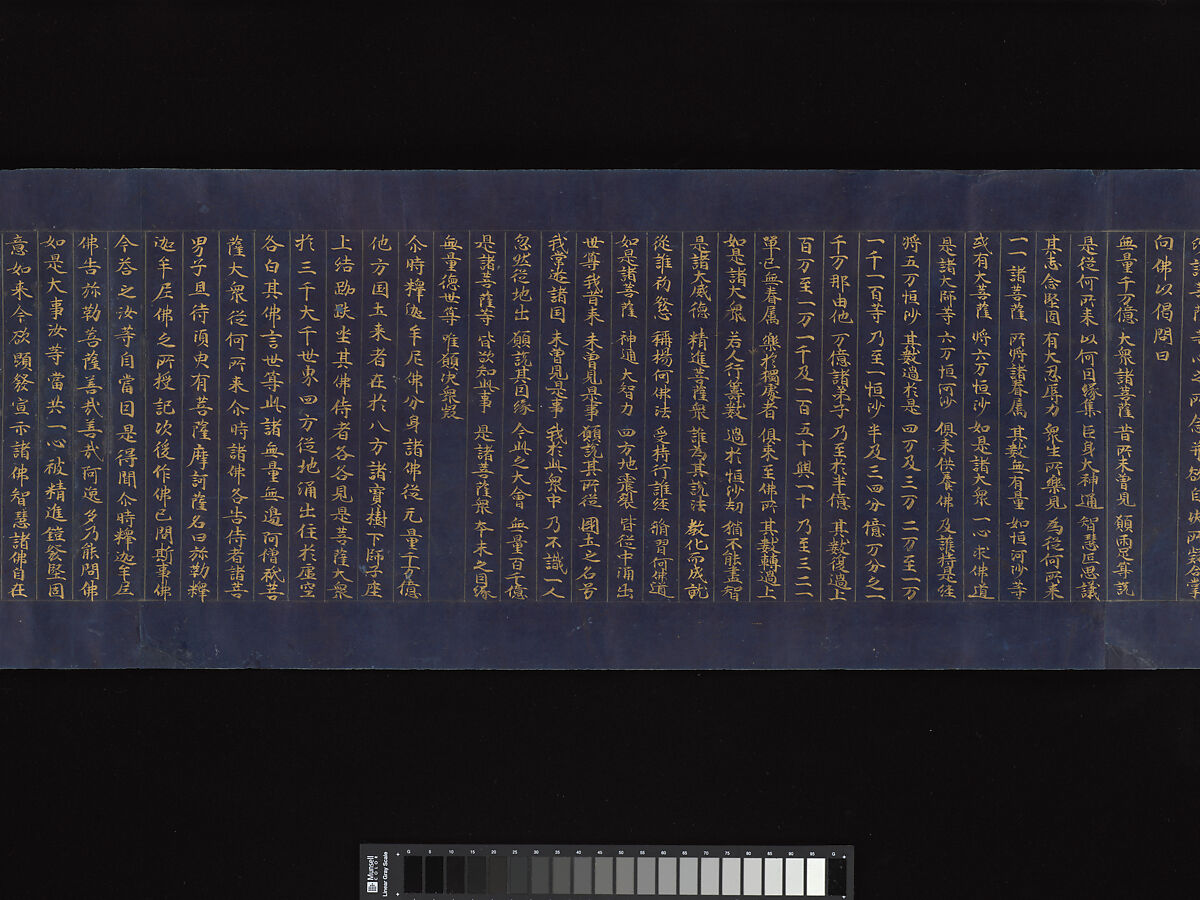 向佛以偈問曰
無量千万億 大衆諸菩薩 昔所未曽見 願兩足尊說
是從何所来 以何因縁集 巨身大神通 智慧叵思議
其志念堅固 有大忍辱力 衆生所樂見 為從何所来
一一諸菩薩 所將諸眷属 其數無有量 如恒河沙等
或有大菩薩 將六万恒沙 如是諸大衆 一心求佛道
是諸大師等 六万恒河沙 俱来供養佛 及護持是経
將五万恒沙 其數過於是 四万及三万 二万至一万
一千一百等 乃至一恒沙 半及三四分 億万分之一
千万那由他 万億諸弟子 乃至於半億 其數復過上
百万至一万 一千及一百 五十與一十 乃至三二一
單己無眷属 樂於獨處者 俱来至佛所 其數轉過上
如是諸大衆 若人行籌數 過於恒沙劫 猶不能盡智
是諸大威德 精進菩薩衆 誰為其說法 教化而成就
從誰初發心 稱揚何佛法 受持行誰経 脩習何佛道
如是諸菩薩 神通大智力 四方地震裂 皆從中涌出
世尊我昔来 未曽見是事 願說其所從 國土之名号
我常遊諸国 未曽見是事 我於此衆中 乃不識一人
忽然從地出 願說其因縁 今此之大會 無量百千億
是諸菩薩等 皆欲知此事 是諸菩薩衆 夲末之因縁
無量德世尊 唯願决衆疑
尒時釋迦牟尼佛分身諸佛從无量千万億
他方国土来者在於八方諸寳樹下師子座
上結跏趺坐其佛侍者各各見是菩薩大衆
於三千大千世界四方從地涌出住於虚空
各白其佛言世尊此諸無量無邊阿僧祇菩
薩大衆從何所来尒時諸佛各告侍者諸善
男子且待須臾有菩薩摩訶薩名曰弥勒釋
迦牟尼佛之所授記次後作佛已問斯事佛
今荅之汝等自當因是得聞尒時釋迦牟尼
佛告弥勒菩薩善哉善哉阿逸多乃能問佛
如是大事汝等當共一心被精進鎧發堅固
意如来今欲顯發宣示諸佛智慧諸佛自在
Munsell
COLOR
Linear Gray Scale
G 5 10 15 20 25 30 35 40 45 50 55 60 65 70 75 80 85 90 95 G